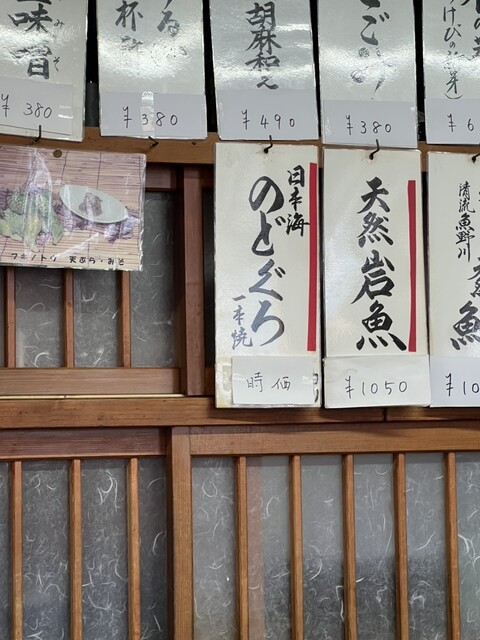 味噌
みそ
¥380
¥380
胡麻和え
¥490
¥380
けびの新芽)
¥6
フキノトウ 天ぷら・みそ
日本海
のどぐろ
一本焼
時価
天然岩魚
¥1050
清流魚野川
魚
¥10